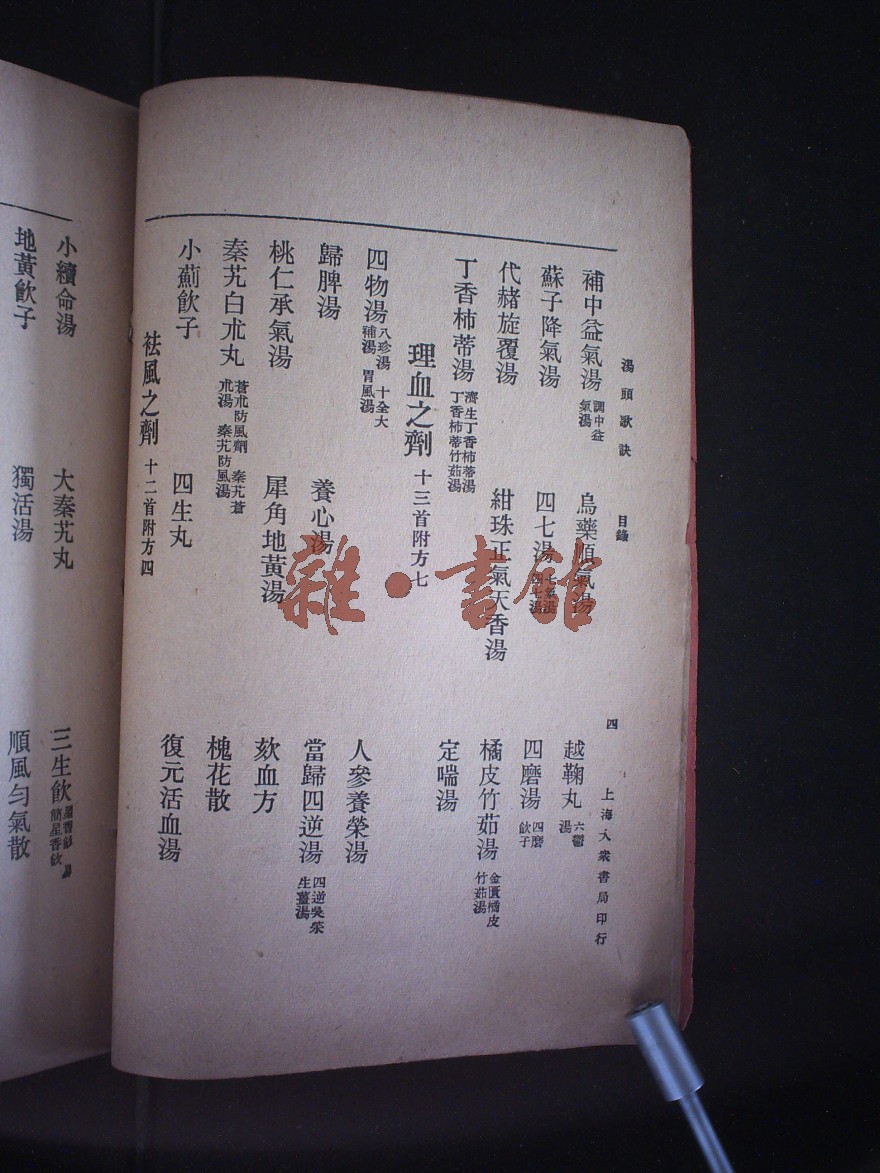 湯頭歌訣 目錄 四 上海大衆書局印行
補中益氣湯 調中益氣湯 烏藥順氣湯 越鞠丸 六鬱湯
蘇子降氣湯 四七湯 四磨湯 四磨飲子
代赭旋覆湯 紺珠正氣天香湯 橘皮竹茹湯 金匱橘皮竹茹湯
丁香柿蒂湯 濟生丁香柿蒂湯 丁香柿蒂竹茹湯 定喘湯
理血之劑 十三首附方七
四物湯 八珍湯 十全大補湯 胃風湯 人參養榮湯
歸脾湯 養心湯 當歸四逆湯 四逆吳茱生薑湯
桃仁承氣湯 犀角地黃湯 欬血方
秦艽白朮丸 蒼朮防風劑 秦艽蒼朮湯 秦艽防風湯 槐花散
小薊飲子 四生丸 復元活血湯
祛風之劑 十二首附方四
小續命湯 大秦艽丸 三生飲 簡星香飲
地黃飲子 獨活湯 順風勻氣散
雜·書館